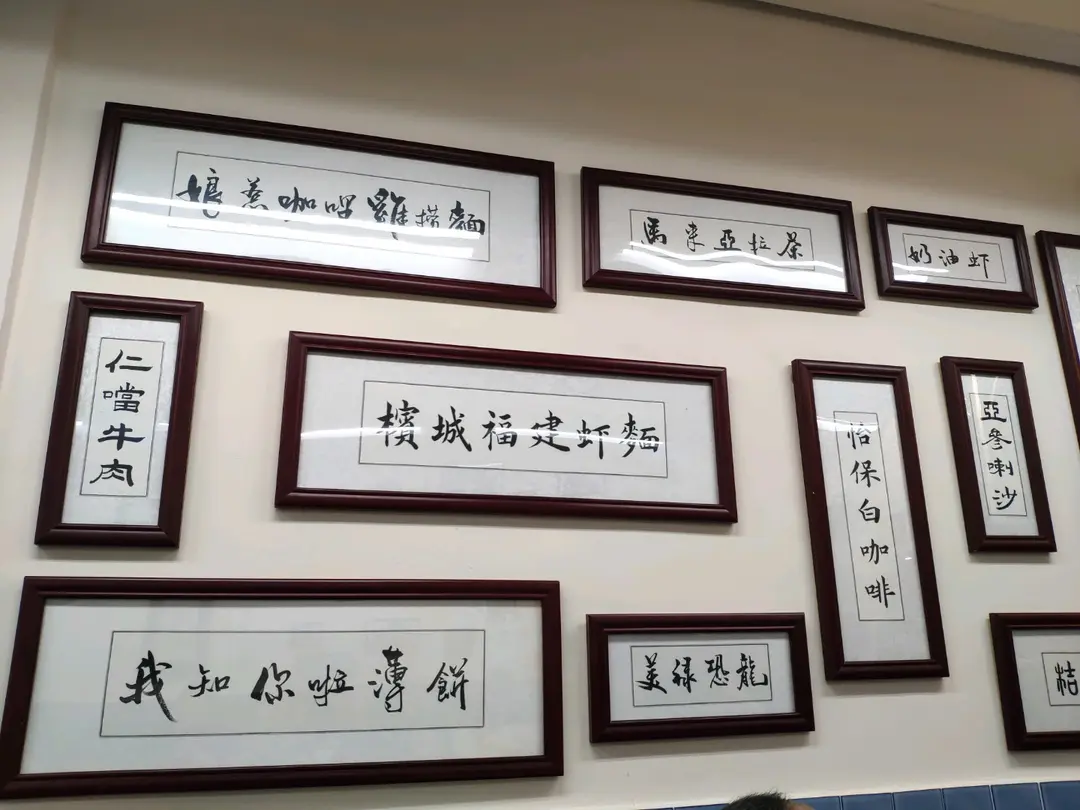 娘惹咖喱雞撈麵
馬來亞拉茶
奶油虾
仁噹牛肉
檳城福建虾麵
怡保白咖啡
亞參喇沙
我知你啦薄餅
美祿恐龍
桔